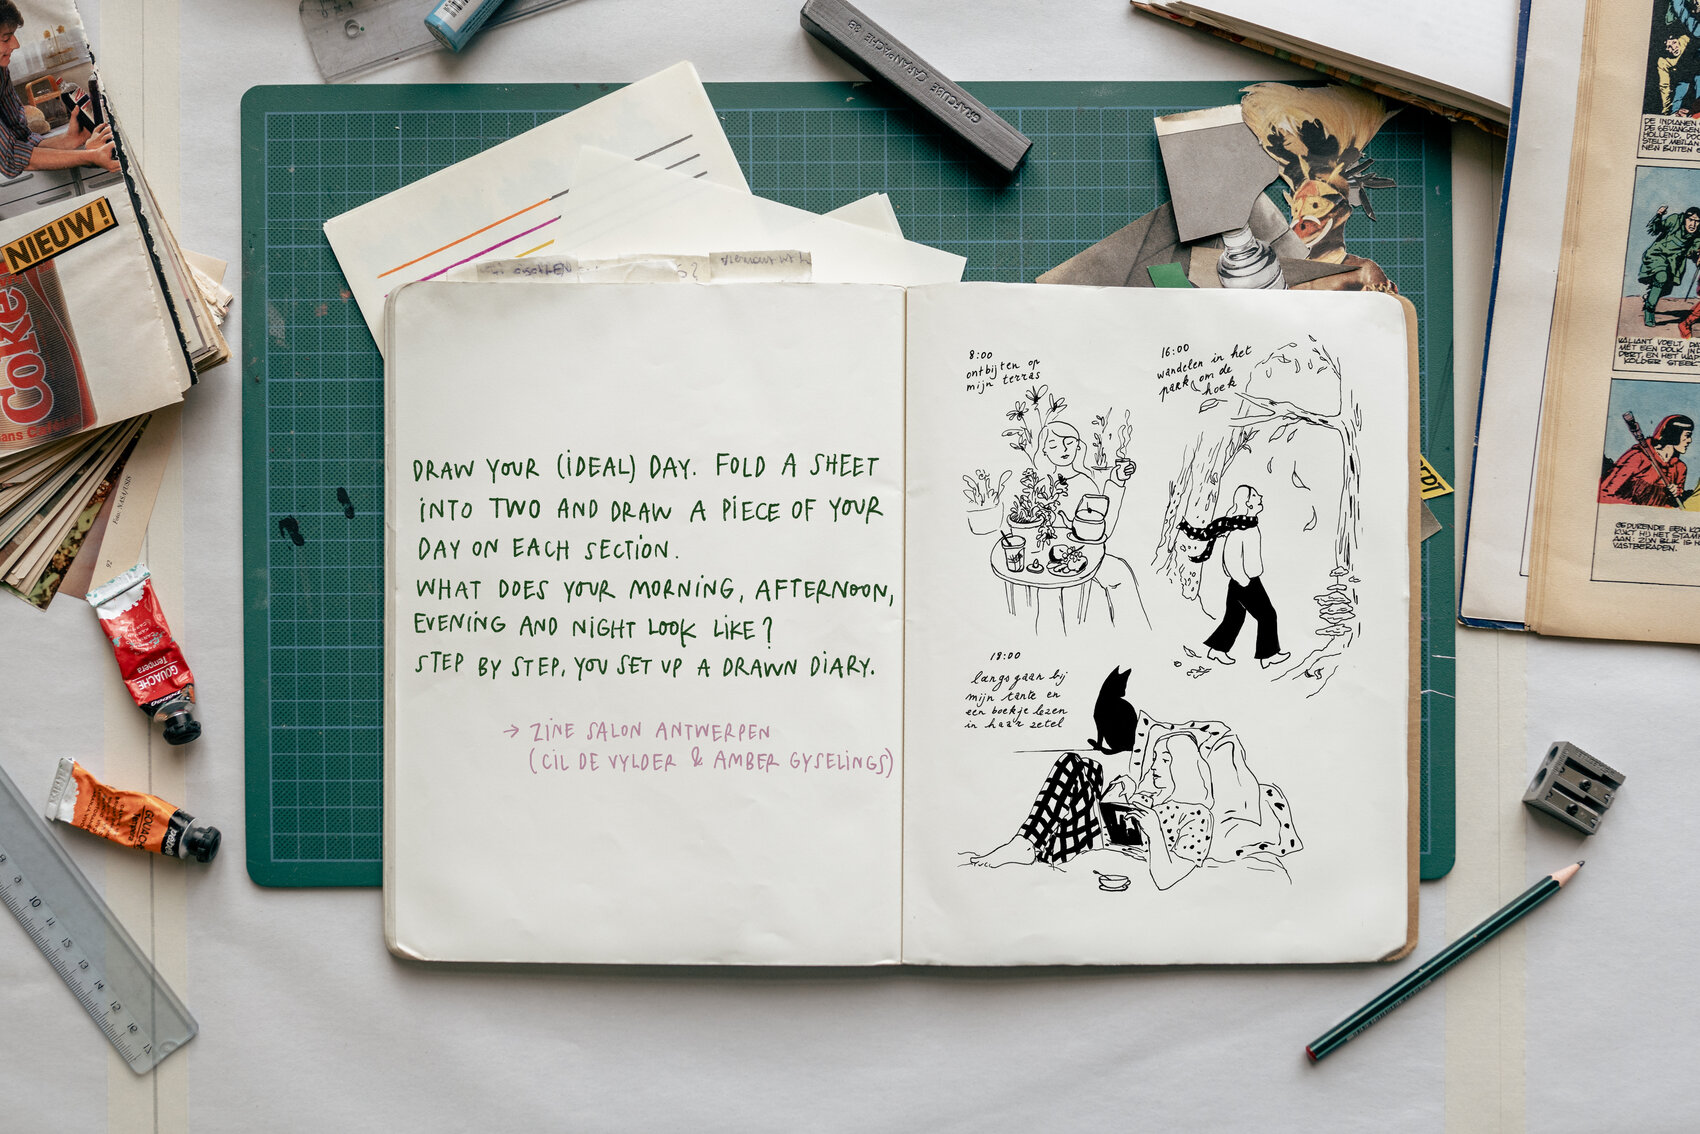 NIEUW!
Coke
GOUACHE
Tempera
GOUACHE
Tempera
8
9
10
11
12
13
14
15
16
17
GRAFCUBE CARAN D'ACHE 3B
DRAW YOUR (IDEAL) DAY. FOLD A SHEET
INTO TWO AND DRAW A PIECE OF YOUR
DAY ON EACH SECTION.
WHAT DOES YOUR MORNING, AFTERNOON,
EVENING AND NIGHT LOOK LIKE?
STEP BY STEP, YOU SET UP A DRAWN DIARY.
→ ZINE SALON ANTWERPEN
(CIL DE VYLDER & AMBER GYSELINGS)
8:00
ontbijten op
mijn terras
16:00
wandelen in het
park om de
hoek
18:00
langsgaan bij
mijn tante en
een boekje lezen
in haar zetel
DE INDIANEN
DE GEVANGEN
HOLLEND, DOO
STELT MEILAN
NEN BUITEN
VALIANT VOELT, DA
MET EEN DOLK IN
DERT, EN HET WAP
KOLDER STEEK
GEDURENDE EEN KO
KIJKT HIJ HET STAM
AAN: ZIJN BLIK IS H
VASTBERADEN.